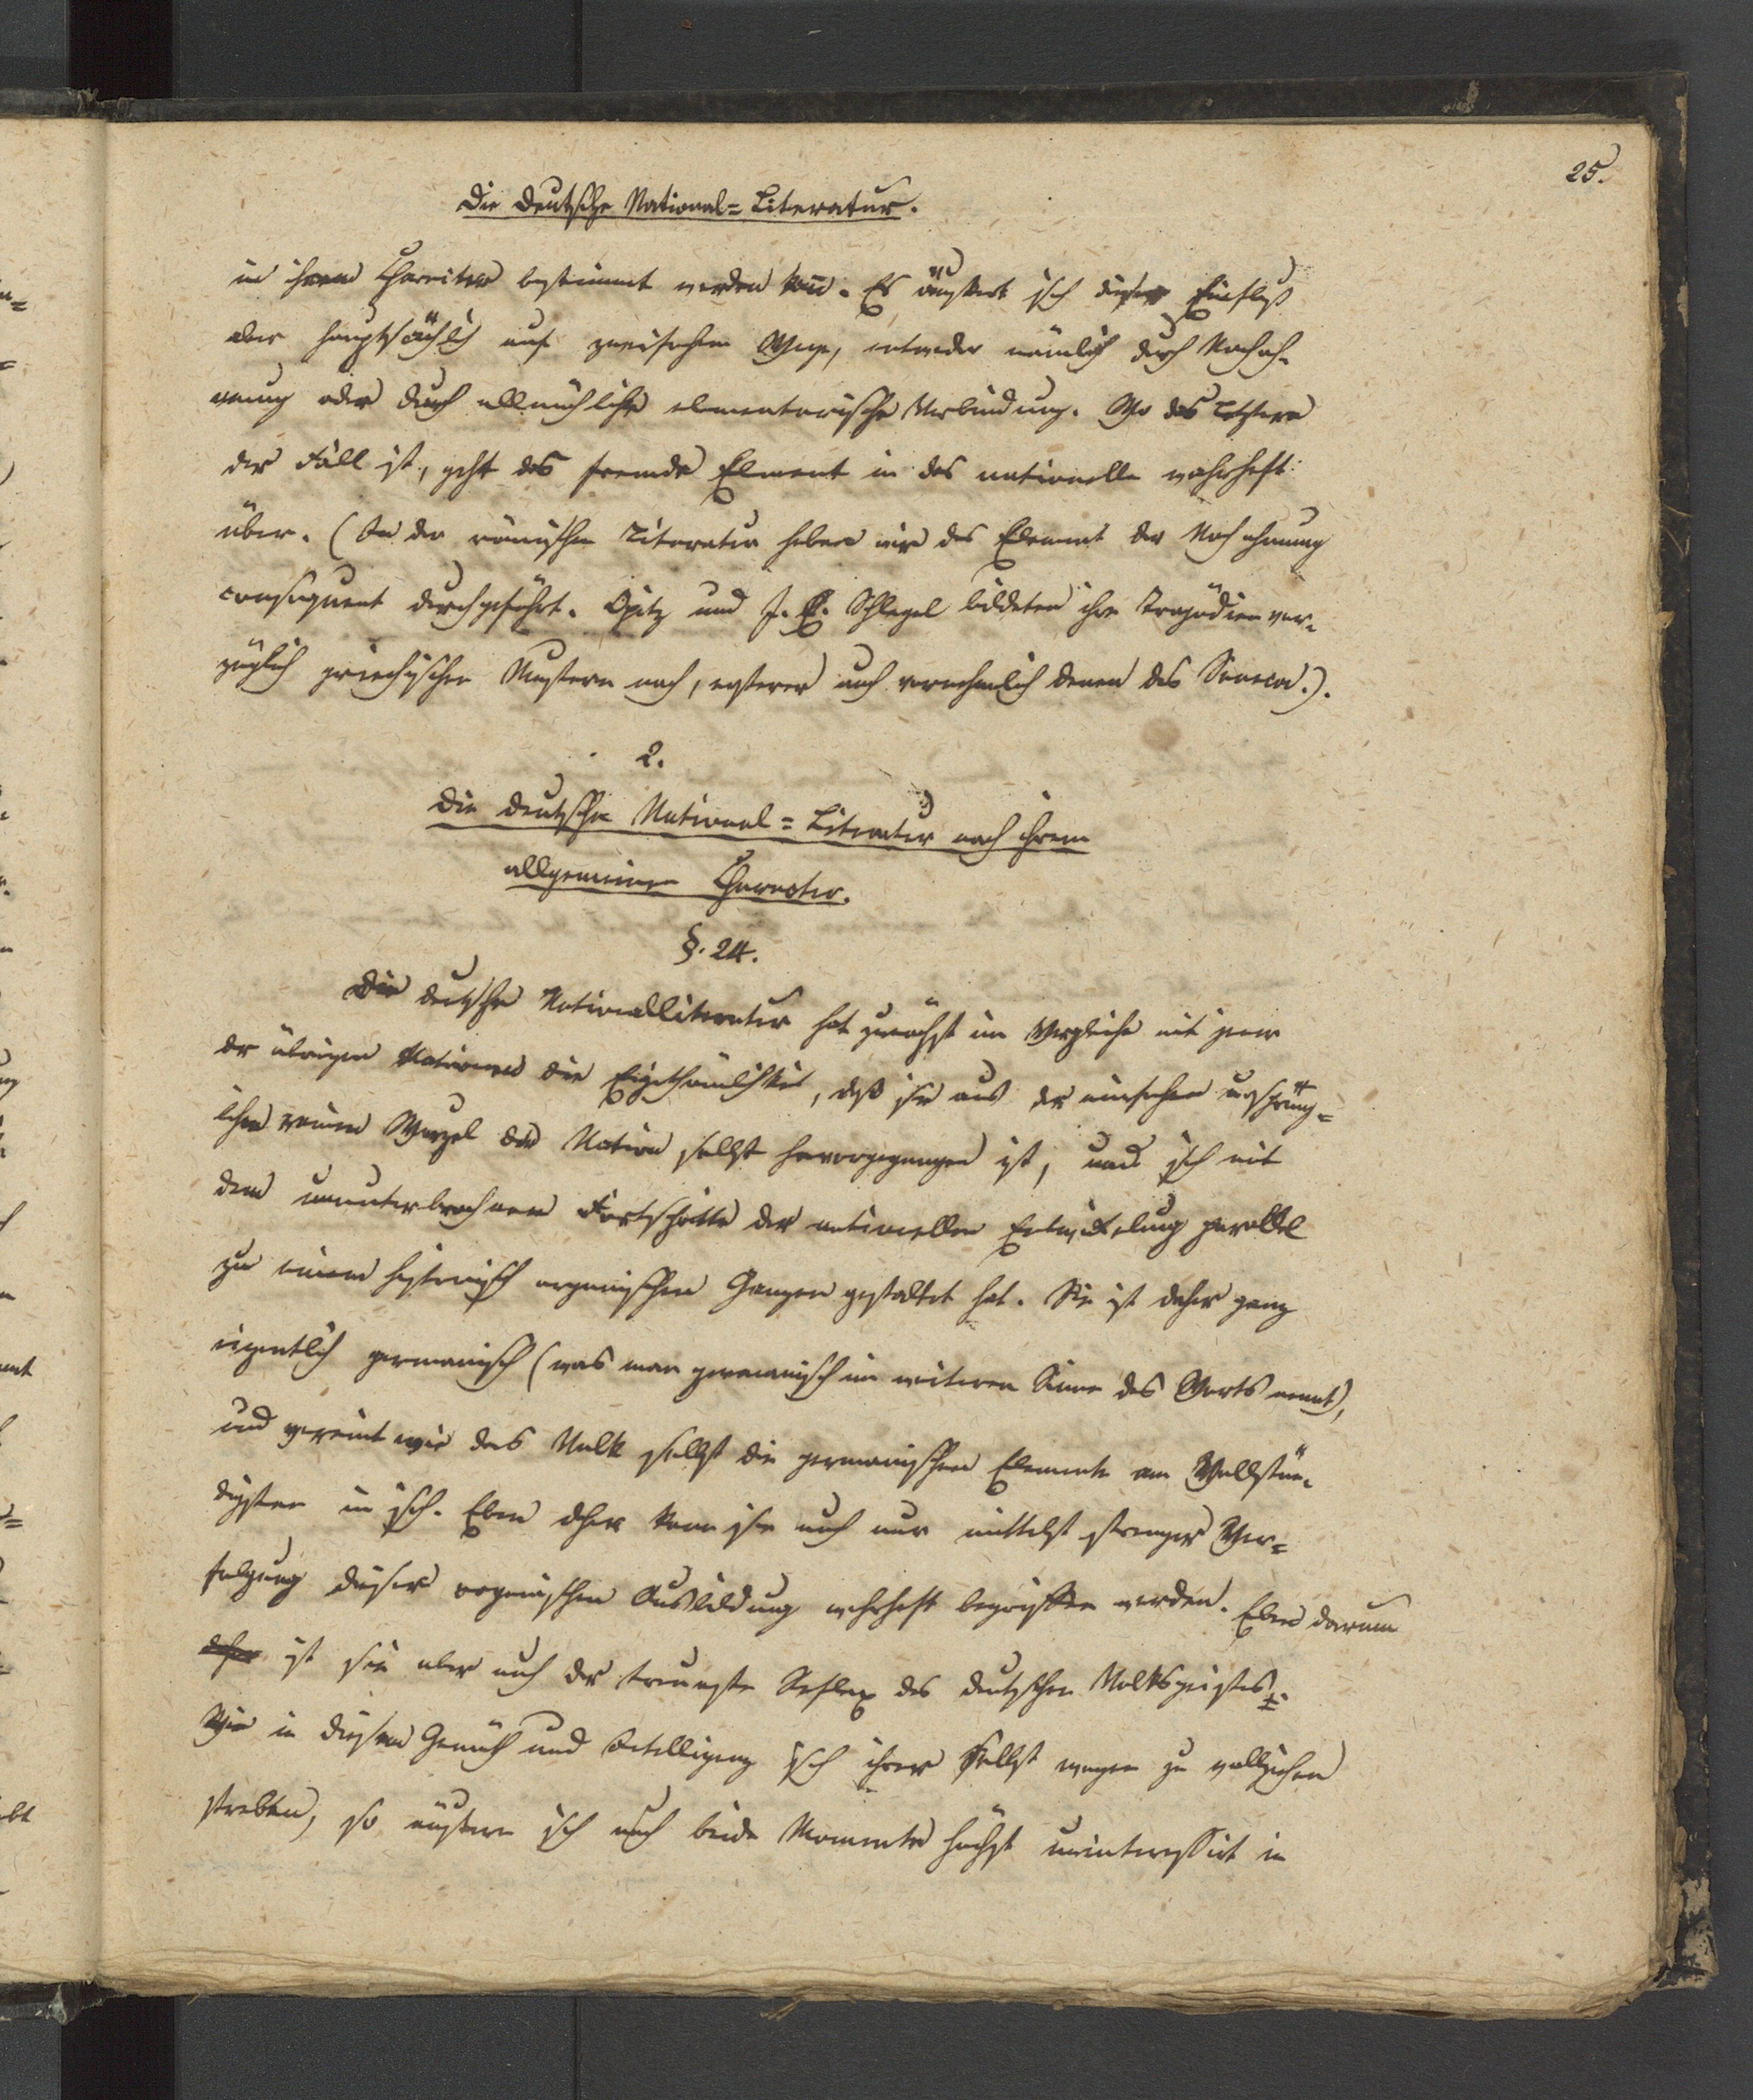 25.
Die deutsche National=Literatur.
in ihrem Charakter bestimmt werden kann. Es äussert sich dieser Einfluß
aber hauptsächlich auf zweifachem Wege, entweder nämlich durch Nachah-
mung oder durch allmähliche elementarische Verbindung. Wo das Letztere
der Fall ist, geht das fremde Element in das nationelle wahrhaft
über. (In der römischen Literatur haben wir das Element der Nachahmung
consequent durchgeführt. Opitz und J. E. Schlegel bildeten ihre Tragödien vor-
züglich griechischen Mustern nach, ersterer auch vornehmlich denen des Seneca.).
2.
Die deutsche National=Literatur nach ihrem
allgemeinen Character.
§. 24.
Die deutsche Nationalliteratur hat zunächst im Vergleiche mit jener
der übrigen Nationen die Eigenthümlichkeit, daß sie aus der einfachen ursprüng=
lichen reinen Wurzel der Nation selbst hervorgegangen ist, und sich mit
dem ununterbrochenen Fortschritte der nationellen Entwickelung parallel
zu einem historisch organischen Ganzen gestaltet hat. Sie ist daher ganz
eigentlich germanisch (was man germanisch im weiteren Sinne des Worts nennt),
und vereint wie das Volk selbst die germanischen Elemente am Vollstän-
digsten in sich. Eben daher kann sie auch nur mittelst strenger Ver=
folgung dieser organischen Ausbildung wahrhaft begriffen werden. Eben darum
daher ist sie aber auch der treueste Reflex des deutschen Volksgeistes.
Wie in diesem Gemüth und Intelligenz sich ihrer selbst wegen zu vollziehen
streben, so äußern sich auch beide Momente höchst uninteressirt in